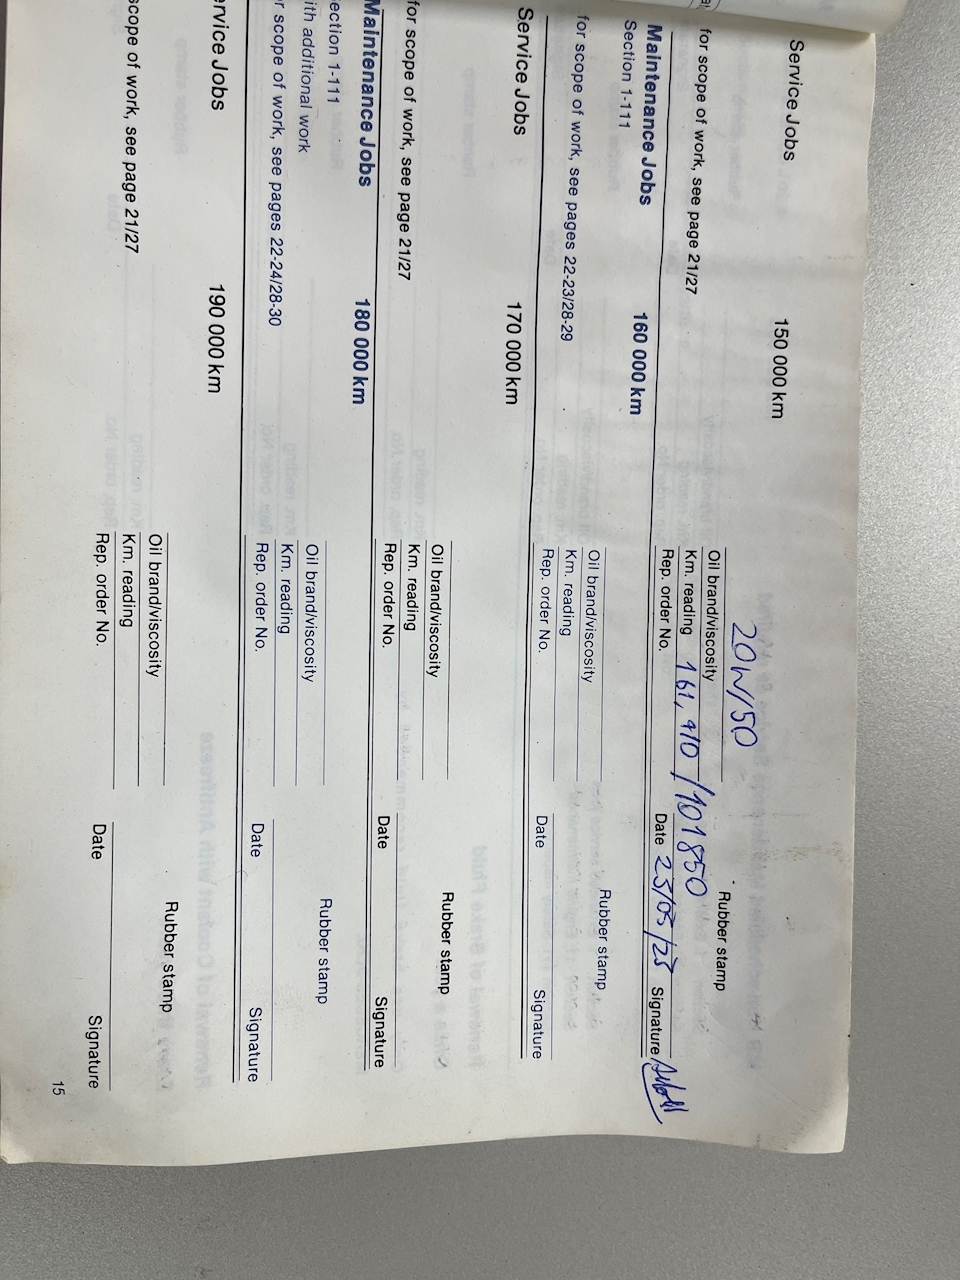 Service Jobs 150 000 km
20W/50
Oil brand/viscosity Rubber stamp
for scope of work, see page 21/27
Km. reading 161,910 /101850
Rep. order No. Date 25/05/23 Signature
Maintenance Jobs 160 000 km
Section 1-111
Oil brand/viscosity Rubber stamp
for scope of work, see pages 22-23/28-29
Km. reading
Rep. order No. Date Signature
Service Jobs 170 000 km
Oil brand/viscosity Rubber stamp
for scope of work, see page 21/27
Km. reading
Rep. order No. Date Signature
Maintenance Jobs 180 000 km
ection 1-111
ith additional work
Oil brand/viscosity Rubber stamp
r scope of work, see pages 22-24/28-30
Km. reading
Rep. order No. Date Signature
ervice Jobs 190 000 km
Oil brand/viscosity Rubber stamp
scope of work, see page 21/27
Km. reading
Rep. order No. Date Signature
15